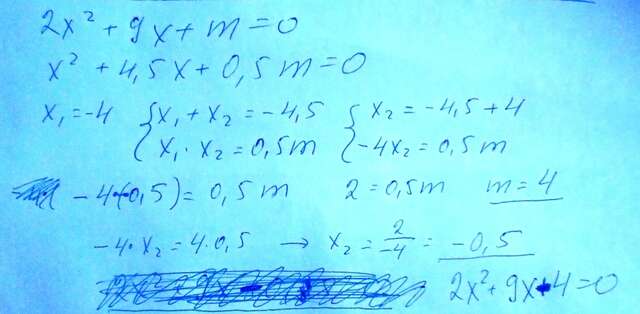 2x² + 9x + m = 0
x² + 4,5x + 0,5m = 0
x₁ = -4 { x₁ + x₂ = -4,5 { x₂ = -4,5 + 4
x₁ · x₂ = 0,5m -4x₂ = 0,5m
-4·(-0,5) = 0,5m 2 = 0,5m m = 4
-4·x₂ = 4·0,5 → x₂ = 2/-4 = -0,5
2x² + 9x + 4 = 0